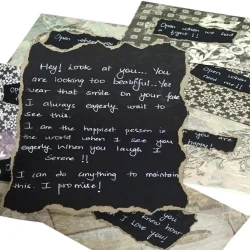 Open when we had
a fight!!
Open when
Open when
need me!!
Hey! Look at you... You
are looking too beautiful...Yes
wear that smile on your face
I always eagerly wait to
see this.
I am the happiest person is
the world when I see you
eagerly. When you laugh I
Serene!!
I can do anything to maintain
this. I promise!
you are
happy!
you
know how
I love you!